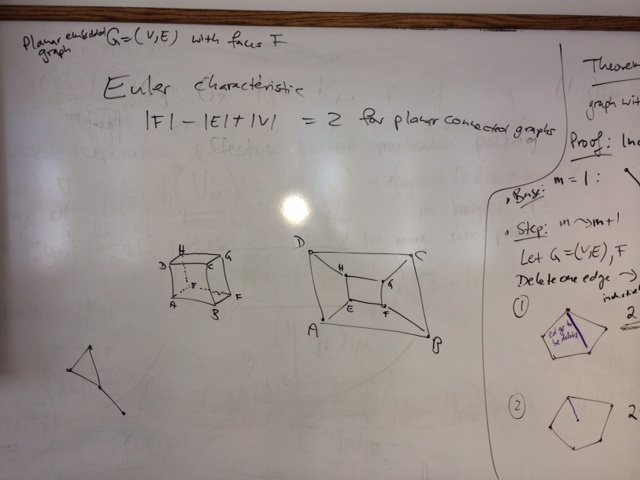 Planar embedded graph G=(V,E) with faces F
Euler characteristic
|F| - |E| + |V| = 2 for planar connected graphs
H
D C G
E
A B F
D C
H G
E F
A B
Theorem
graph with
Proof: Ind
• Base: m = 1 :
• Step: m → m+1
Let G=(V,E), F
Delete one edge →
①
edge to be deleted
2
②
2